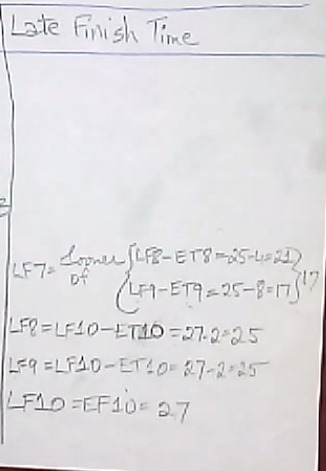 Late Finish Time
LF8-ET8=25-4=21
LF7= Sooner Of 17
LF9-ET9=25-8=17
LF8=LF10-ET10=27-2=25
LF9=LF10-ET10=27-2=25
LF10=EF10=27